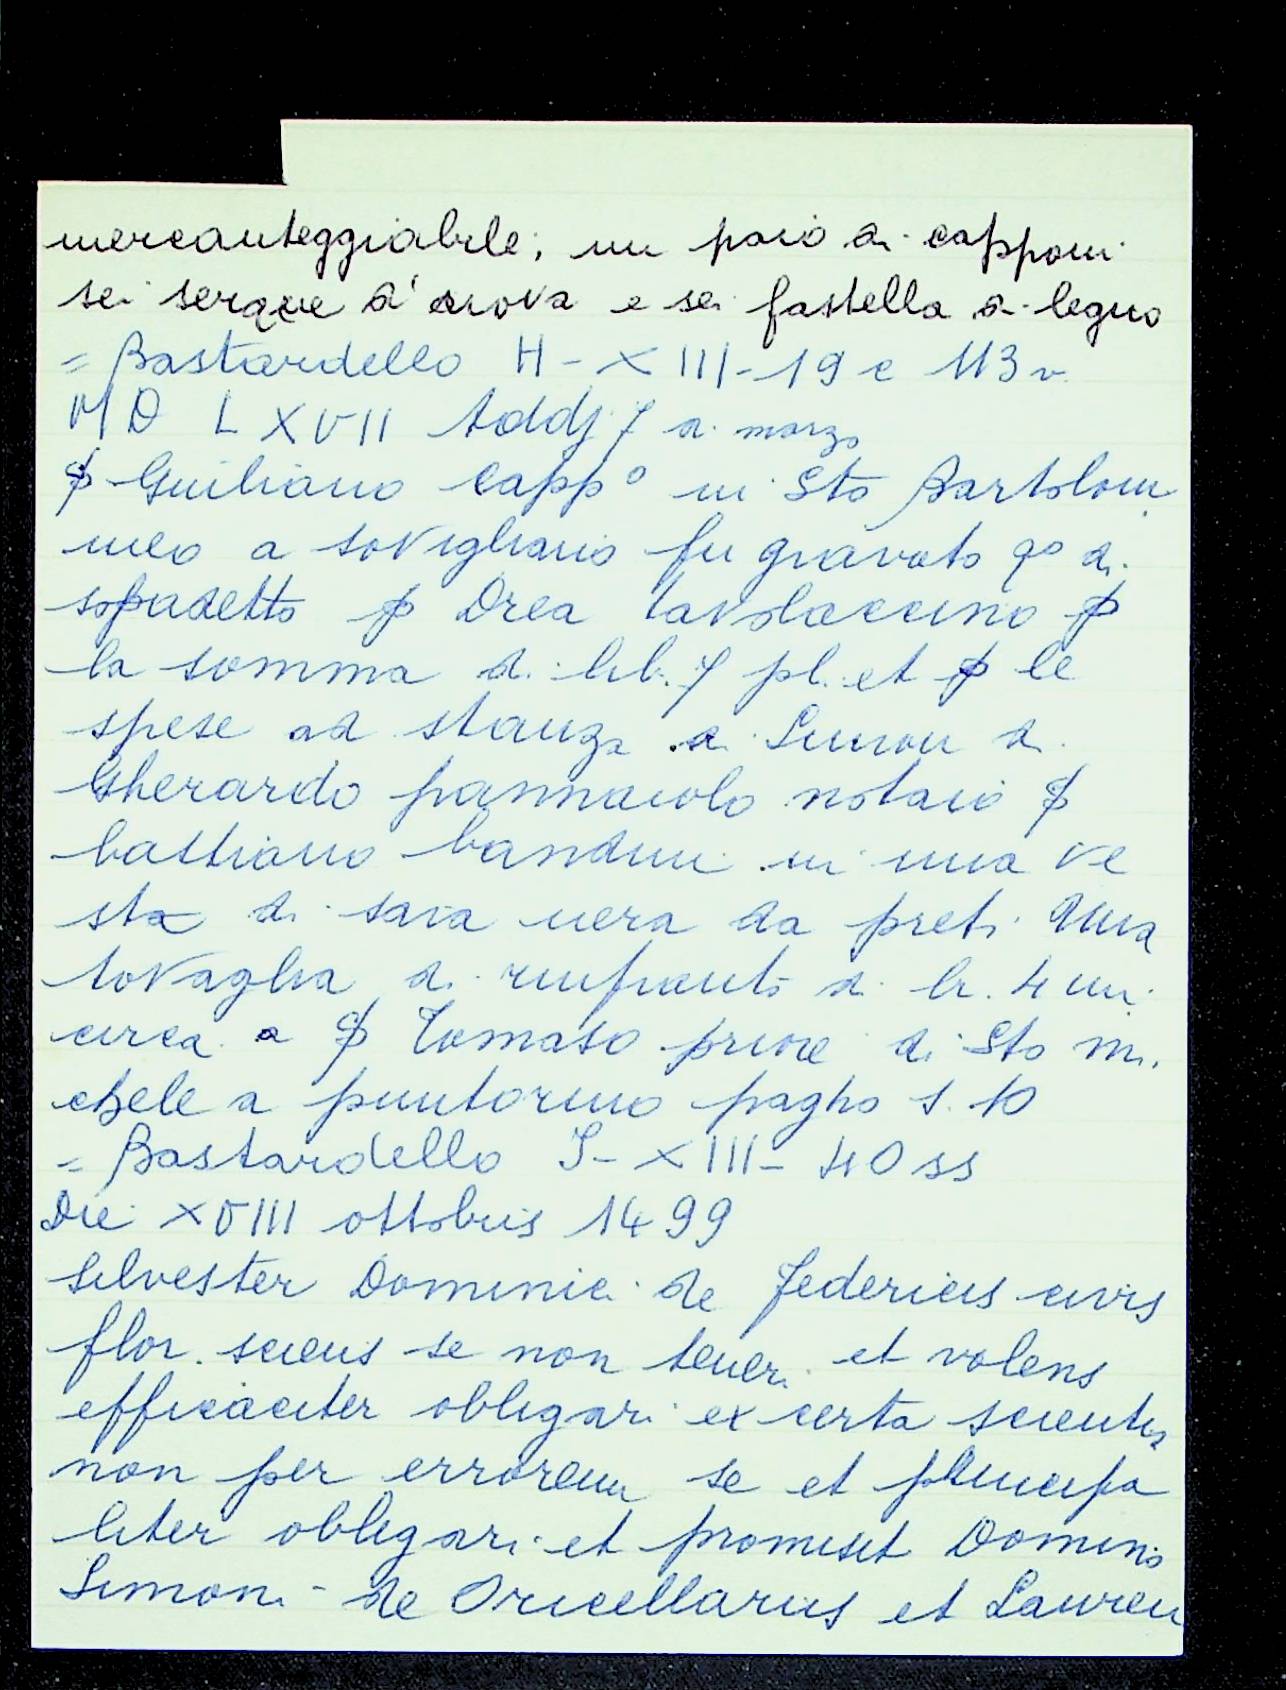 mercanteggiabile; un paio di capponi
sei serque d'uova e sei fastella di legno
= Bastardello H - XIII - 19 c 113 v.
MD LXVII Addj 7 di marzo
ꝑ Guiliano Capp° in Sto Bartolom
meo a sovigliano fu gravato q° di
sopradetto ꝑ Drea tavolaccino ꝑ
la somma di lib. 7 pl. et ꝑ le
spese ad stanza di Simon di
Gherardo pannaiolo notaio ꝑ
bastiano bandini in una ve
sta di saia nera da preti Una
tovaglia di rinfranto di br. 4 in
circa a ꝑ Tomaso priore di Sto mi
chele a puntorino pagho s. 10
= Bastardello I - XIII - 40 ss
Die XVIII ottobris 1499
Silvester Dominici de Federicis civis
flor. sciens se non teneri et volens
efficaciter obligari ex certa scientia
non per errorem se et principa
liter obligari et promisit Domino
Simoni - de Oricellariis et Lauren